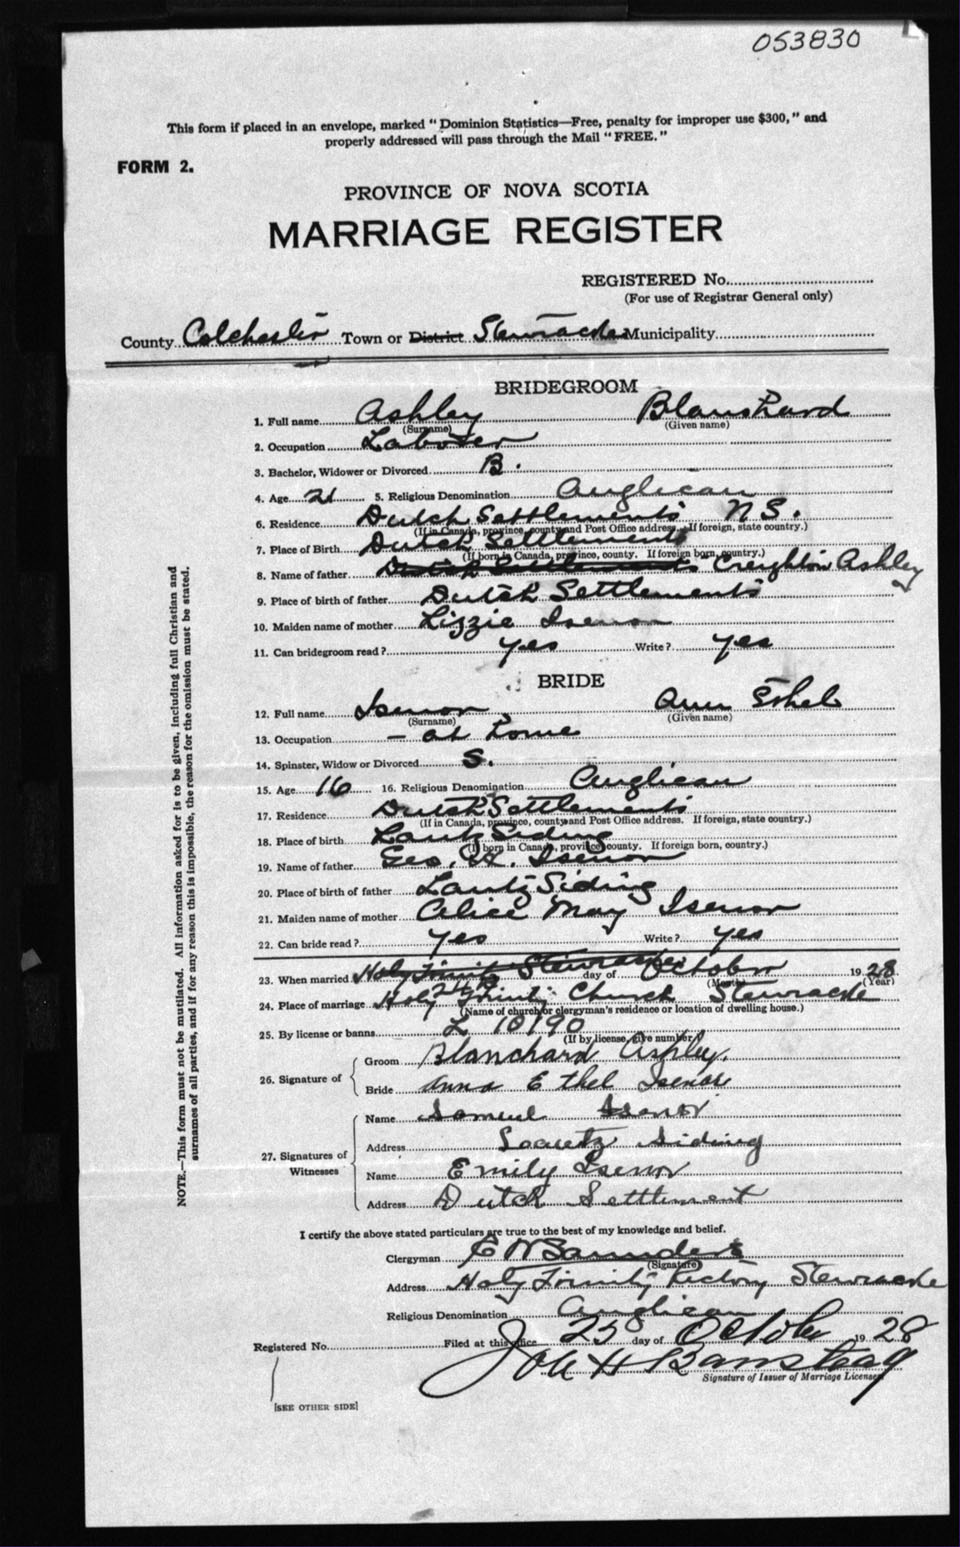 053830
This form if placed in an envelope, marked "Dominion Statistics—Free, penalty for improper use $300," and
properly addressed will pass through the Mail "FREE."
FORM 2.
PROVINCE OF NOVA SCOTIA
MARRIAGE REGISTER
REGISTERED No.
(For use of Registrar General only)
County Colchester Town or District Stewiacke Municipality
BRIDEGROOM
1. Full name Ashley Blanchard
(Surname) (Given name)
2. Occupation Laborer
3. Bachelor, Widower or Divorced B.
4. Age 21 5. Religious Denomination Anglican
6. Residence Dutch Settlements N S.
(If in Canada, province, county and Post Office address. If foreign, state country.)
7. Place of Birth Dutch Settlements
(If born in Canada, province, county. If foreign born, country.)
8. Name of father Dutch Settlements Creighton Ashley
9. Place of birth of father Dutch Settlements
10. Maiden name of mother Lizzie Isenor
11. Can bridegroom read? yes Write? yes
BRIDE
12. Full name Isenor Ann Ethel
(Surname) (Given name)
13. Occupation — at home
14. Spinster, Widow or Divorced S.
15. Age 16 16. Religious Denomination Anglican
17. Residence Dutch Settlements
(If in Canada, province, county and Post Office address. If foreign, state country.)
18. Place of birth Lantz Siding
(If born in Canada, province, county. If foreign born, country.)
19. Name of father Geo. H. Isenor
20. Place of birth of father Lantz Siding
21. Maiden name of mother Alice May Isenor
22. Can bride read? yes Write? yes
23. When married Holy Trinity Stewiacke day of October 1928
(Month) (Year)
24. Place of marriage Holy Trinity Church Stewiacke
(Name of church or clergyman's residence or location of dwelling house.)
25. By license or banns L 10190
(If by license, give number)
26. Signature of
Groom Blanchard Ashley.
Bride Anna Ethel Isenor
27. Signatures of Witnesses
Name Samuel Isenor
Address Lantz Siding
Name Emily Isenor
Address Dutch Settlement
I certify the above stated particulars are true to the best of my knowledge and belief.
Clergyman E W Saunders
(Signature)
Address Holy Trinity Rectory Stewiacke
Religious Denomination Anglican
Registered No. Filed at this office 25 day of October 1928
Signature of Issuer of Marriage Licenses
[SEE OTHER SIDE]
NOTE.—This form must not be mutilated. All information asked for is to be given, including full Christian and
surnames of all parties, and if for any reason this is impossible, the reason for the omission must be stated.